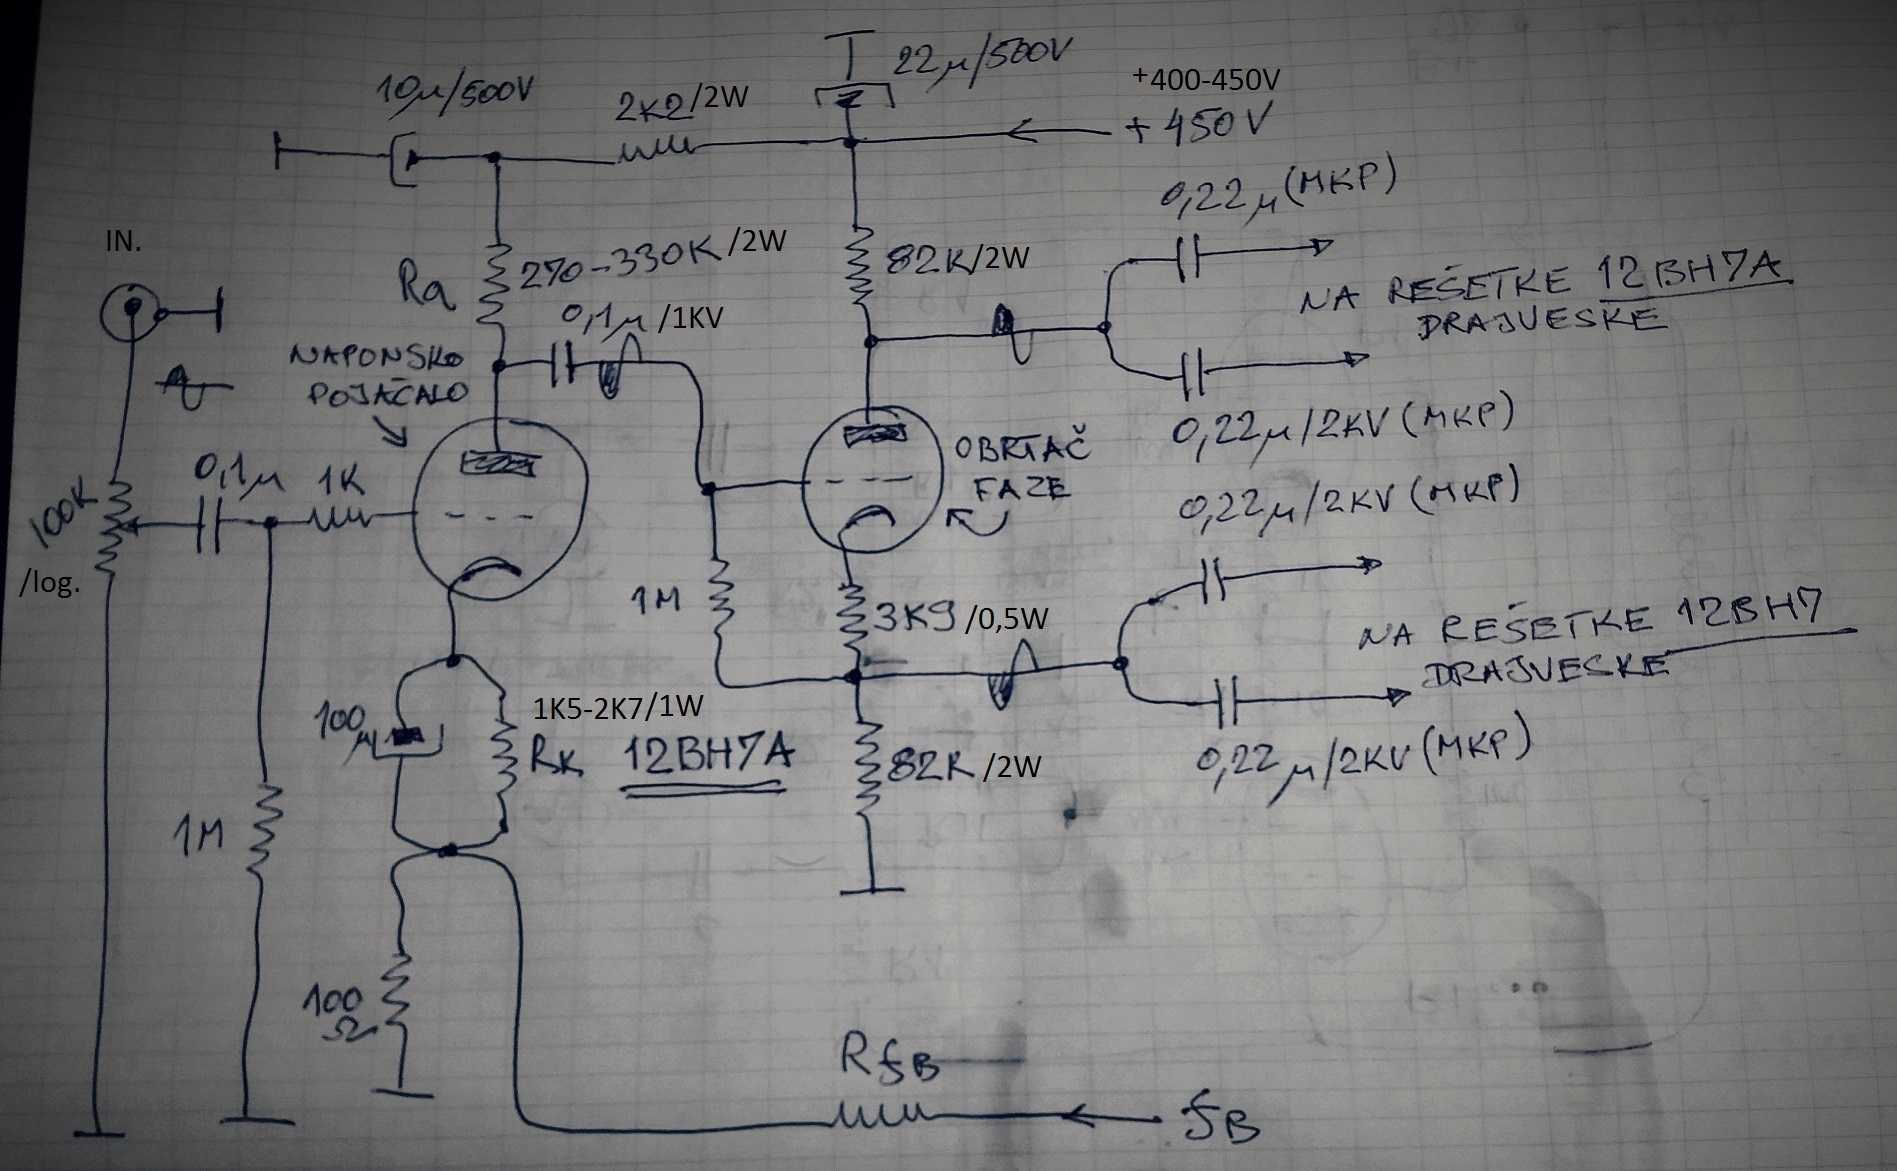 10μ/500V
2K2/2W
22μ/500V
+400-450V
+450V
0,22μ(MKP)
IN.
Ra
270-330K/2W
82K/2W
0,1μ/1KV
NA REŠETKE 12BH7A
DRAJVESKE
NAPONSKO
POJAČALO
0,22μ/2KV(MKP)
OBRTAČ
FAZE
0,1μ
1K
100K
/log.
0,22μ/2KV(MKP)
1M
3K9/0,5W
NA REŠETKE 12BH7
DRAJVESKE
100μ
1K5-2K7/1W
RK
12BH7A
82K/2W
0,22μ/2KV(MKP)
1M
100
Ω
RfB
fB